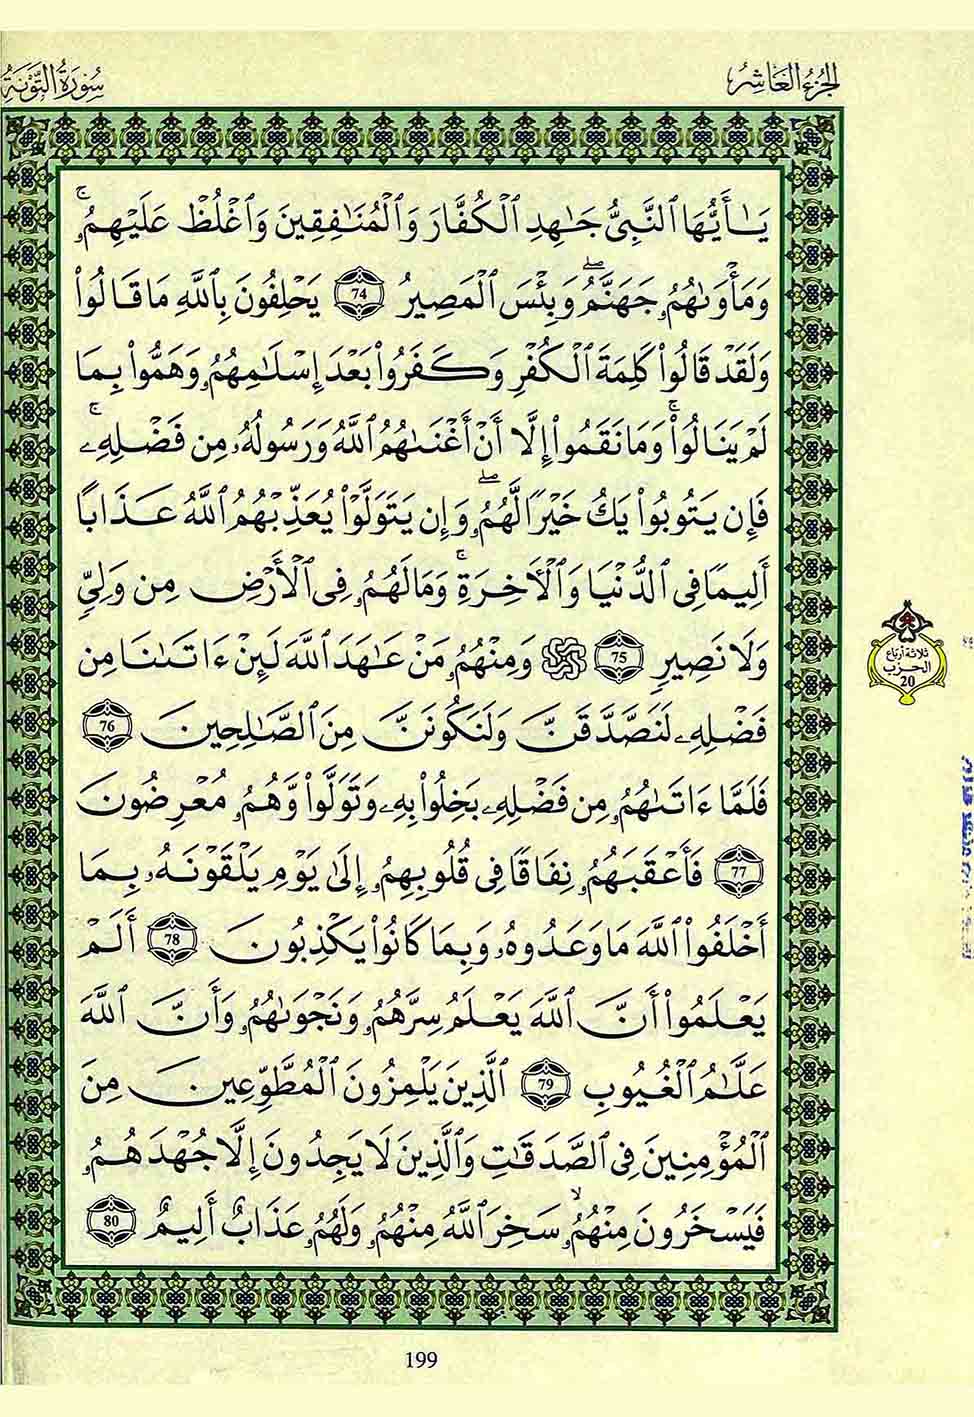 سُورَةُ التَّوْبَةِ
الجُزْءُ العَاشِرُ
يَٰأَيُّهَا ٱلنَّبِىُّ جَٰهِدِ ٱلْكُفَّارَ وَٱلْمُنَٰفِقِينَ وَٱغْلُظْ عَلَيْهِمُۥۚ
وَمَأْوَىٰهُمُۥ جَهَنَّمُۖ وَبِئْسَ ٱلْمَصِيرُ 74 يَحْلِفُونَ بِٱللَّهِ مَا قَالُواْ
وَلَقَدْ قَالُواْ كَلِمَةَ ٱلْكُفْرِ وَكَفَرُواْ بَعْدَ إِسْلَٰمِهِمُۥ وَهَمُّواْ بِمَا
لَمْ يَنَالُواْۚ وَمَا نَقَمُواْ إِلَّا أَنْ أَغْنَىٰهُمُ ٱللَّهُ وَرَسُولُهُۥ مِن فَضْلِهِۦۚ
فَإِن يَتُوبُواْ يَكُ خَيْرًا لَّهُمُۥۖ وَإِن يَتَوَلَّوْاْ يُعَذِّبْهُمُ ٱللَّهُ عَذَابًا
أَلِيمًا فِى ٱلدُّنْيَا وَٱلْأَخِرَةِۚ وَمَا لَهُمُۥ فِى ٱلْأَرْضِ مِن وَلِىٍّ
وَلَا نَصِيرٍ 75 ۞ وَمِنْهُمُۥ مَنْ عَٰهَدَ ٱللَّهَ لَئِنْ ءَاتَىٰنَا مِن
فَضْلِهِۦ لَنَصَّدَّقَنَّ وَلَنَكُونَنَّ مِنَ ٱلصَّٰلِحِينَ 76
فَلَمَّا ءَاتَىٰهُمُۥ مِن فَضْلِهِۦ بَخِلُواْ بِهِۦ وَتَوَلَّواْ وَّهُمُۥ مُعْرِضُونَ
77 فَأَعْقَبَهُمُۥ نِفَاقًا فِى قُلُوبِهِمُۥ إِلَىٰ يَوْمِ يَلْقَوْنَهُۥ بِمَا
أَخْلَفُواْ ٱللَّهَ مَا وَعَدُوهُۥ وَبِمَا كَانُواْ يَكْذِبُونَ 78 أَلَمْ
يَعْلَمُواْ أَنَّ ٱللَّهَ يَعْلَمُ سِرَّهُمُۥ وَنَجْوَىٰهُمُۥ وَأَنَّ ٱللَّهَ
عَلَّٰمُ ٱلْغُيُوبِ 79 ٱلَّذِينَ يَلْمِزُونَ ٱلْمُطَّوِّعِينَ مِنَ
ٱلْمُؤْمِنِينَ فِى ٱلصَّدَقَٰتِ وَٱلَّذِينَ لَا يَجِدُونَ إِلَّا جُهْدَهُمُۥ
فَيَسْخَرُونَ مِنْهُمُۥۙ سَخِرَ ٱللَّهُ مِنْهُمُۥ وَلَهُمُۥ عَذَابٌ أَلِيمٌ 80
ثلاثة أرباع
الحزب
20
199